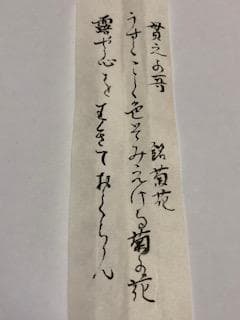 貫之の哥　銘菊花
うすくこく色そみえける菊の花
露や心をわきておくらん